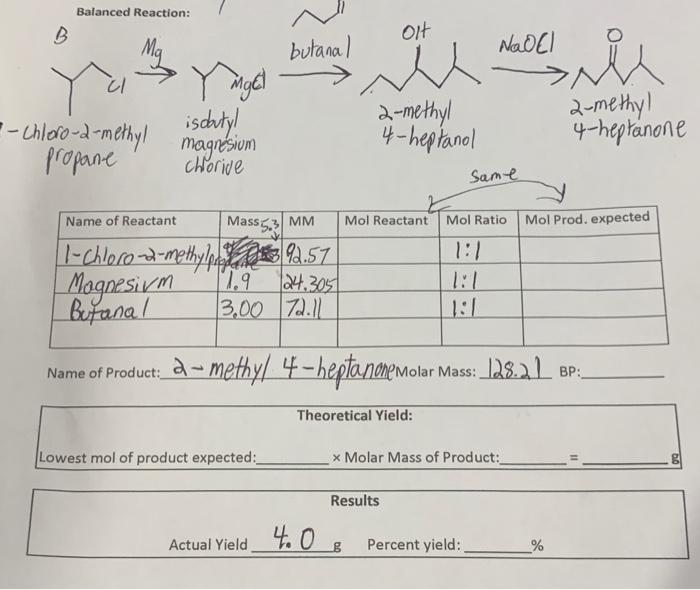 Balanced Reaction:
B
Mg
butanal
OH
NaOCl
O
Cl
MgCl
-chloro-2-methyl
propane
isobutyl
magnesium
chloride
2-methyl
4-heptanol
2-methyl
4-heptanone
same
Name of Reactant Mass 5.3 MM Mol Reactant Mol Ratio Mol Prod. expected
1-chloro-2-methylpropane 92.57 1:1
Magnesium 1.9 24.305 1:1
Butanal 3.00 72.11 1:1
Name of Product: 2-methyl 4-heptanone Molar Mass: 128.21 BP:
Theoretical Yield:
Lowest mol of product expected: × Molar Mass of Product: = g
Results
Actual Yield 4.0 g Percent yield: %